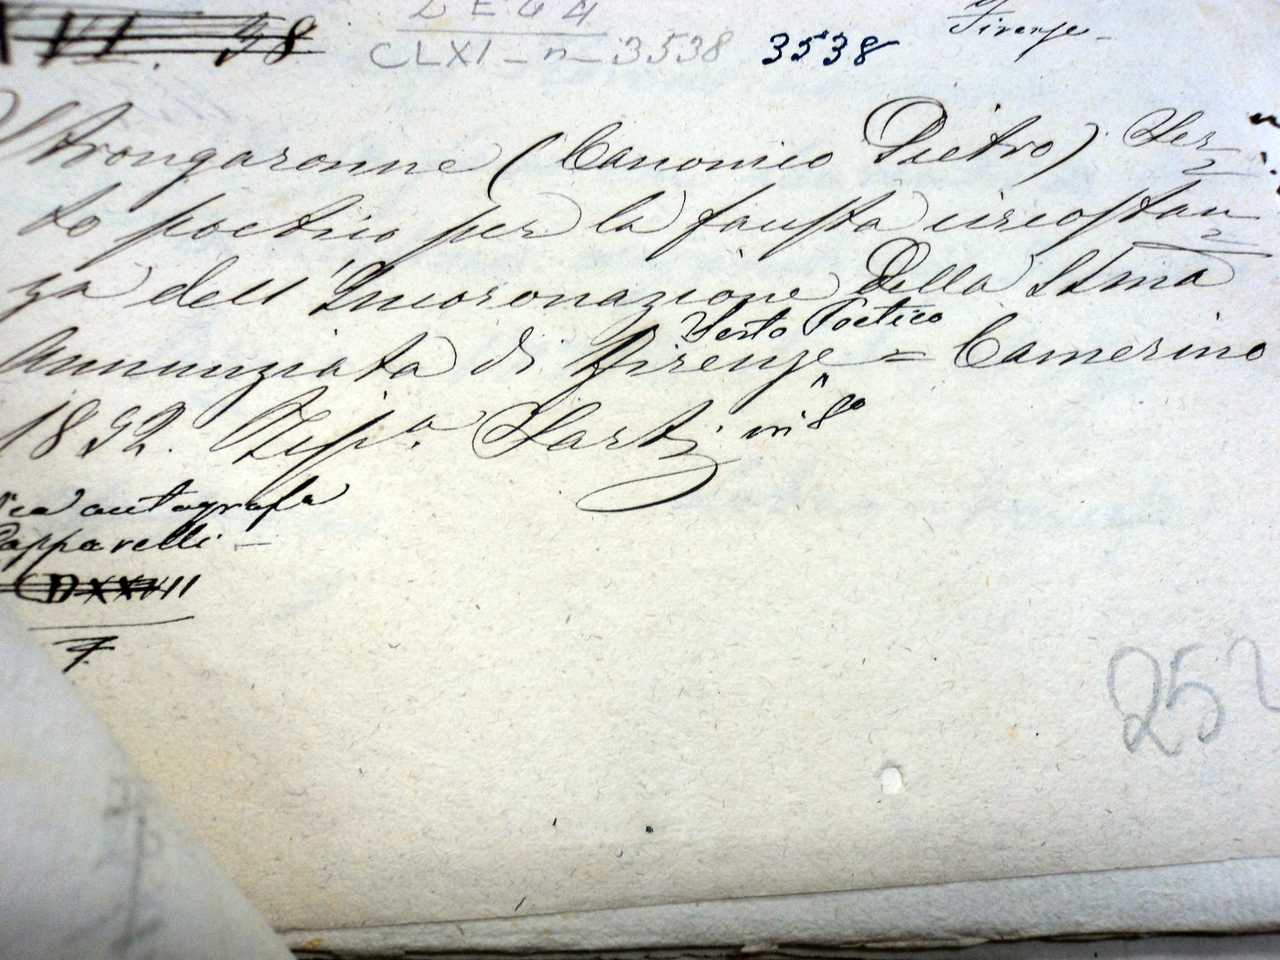 XVII. 38
CLXI - n - 3538 3538
Firenze -
Strongaronne (Canonico Pietro) Ser-
to poetico per la fausta circostan-
za dell'Incoronazione Della SSma
Serto Poetico
Annunziata di Firenze = Camerino
1852. Tip.a Sarti in 8o
autografa
Papparelli -
7.
252